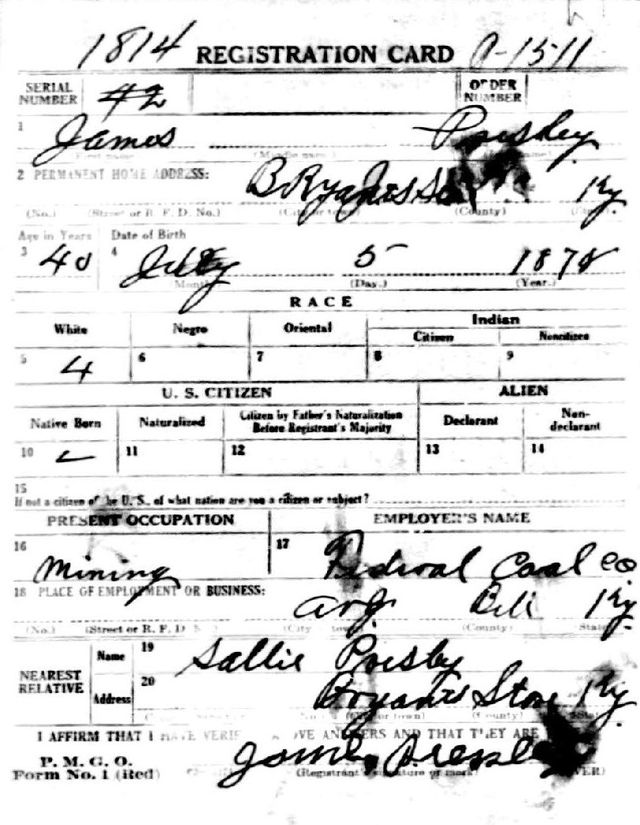 1814 REGISTRATION CARD A-1511
SERIAL NUMBER 42 ORDER NUMBER
1 James Presley
(First name) (Middle name) name)
2 PERMANENT HOME ADDRESS: Bryants Store Ky
(No.) (Street or R. F. D. No.) (City or town) (County)
Age in Years Date of Birth
3 40 4 July 5 1878
(Month) (Day.) (Year.)
RACE
White Negro Oriental Indian
Citizen Noncitizen
5 6 7 8 9
U. S. CITIZEN ALIEN
Native Born Naturalized Citizen by Father's Naturalization Before Registrant's Majority Declarant Non-declarant
10 11 12 13 14
15
If not a citizen of the U. S., of what nation are you a citizen or subject?
PRESENT OCCUPATION EMPLOYER'S NAME
16 Mining 17 Fedral Coal Co
18 PLACE OF EMPLOYMENT OR BUSINESS:
Bell Ky
(No.) (Street or R. F. D (City town) (County) State
NEAREST RELATIVE Name 19 Sallie Presley
Address 20 Bryants Store Ky
(City or town) (County)
I AFFIRM THAT I HAVE VERIF OVE ANSWERS AND THAT THEY ARE
P. M. G. O.
Form No. 1 (Red) James Pressley
(Registrant's signature or mark) VER)